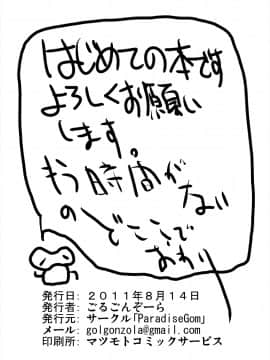 はじめての本です
よろしくお願い
します。
もう時間がない
のでここで
おわり
発行日: 2011年8月14日
発行者: ごるごんぞーら
発行元: サークル「ParadiseGom」
メール: golgonzola@gmail.com
印刷所: マツモトコミックサービス